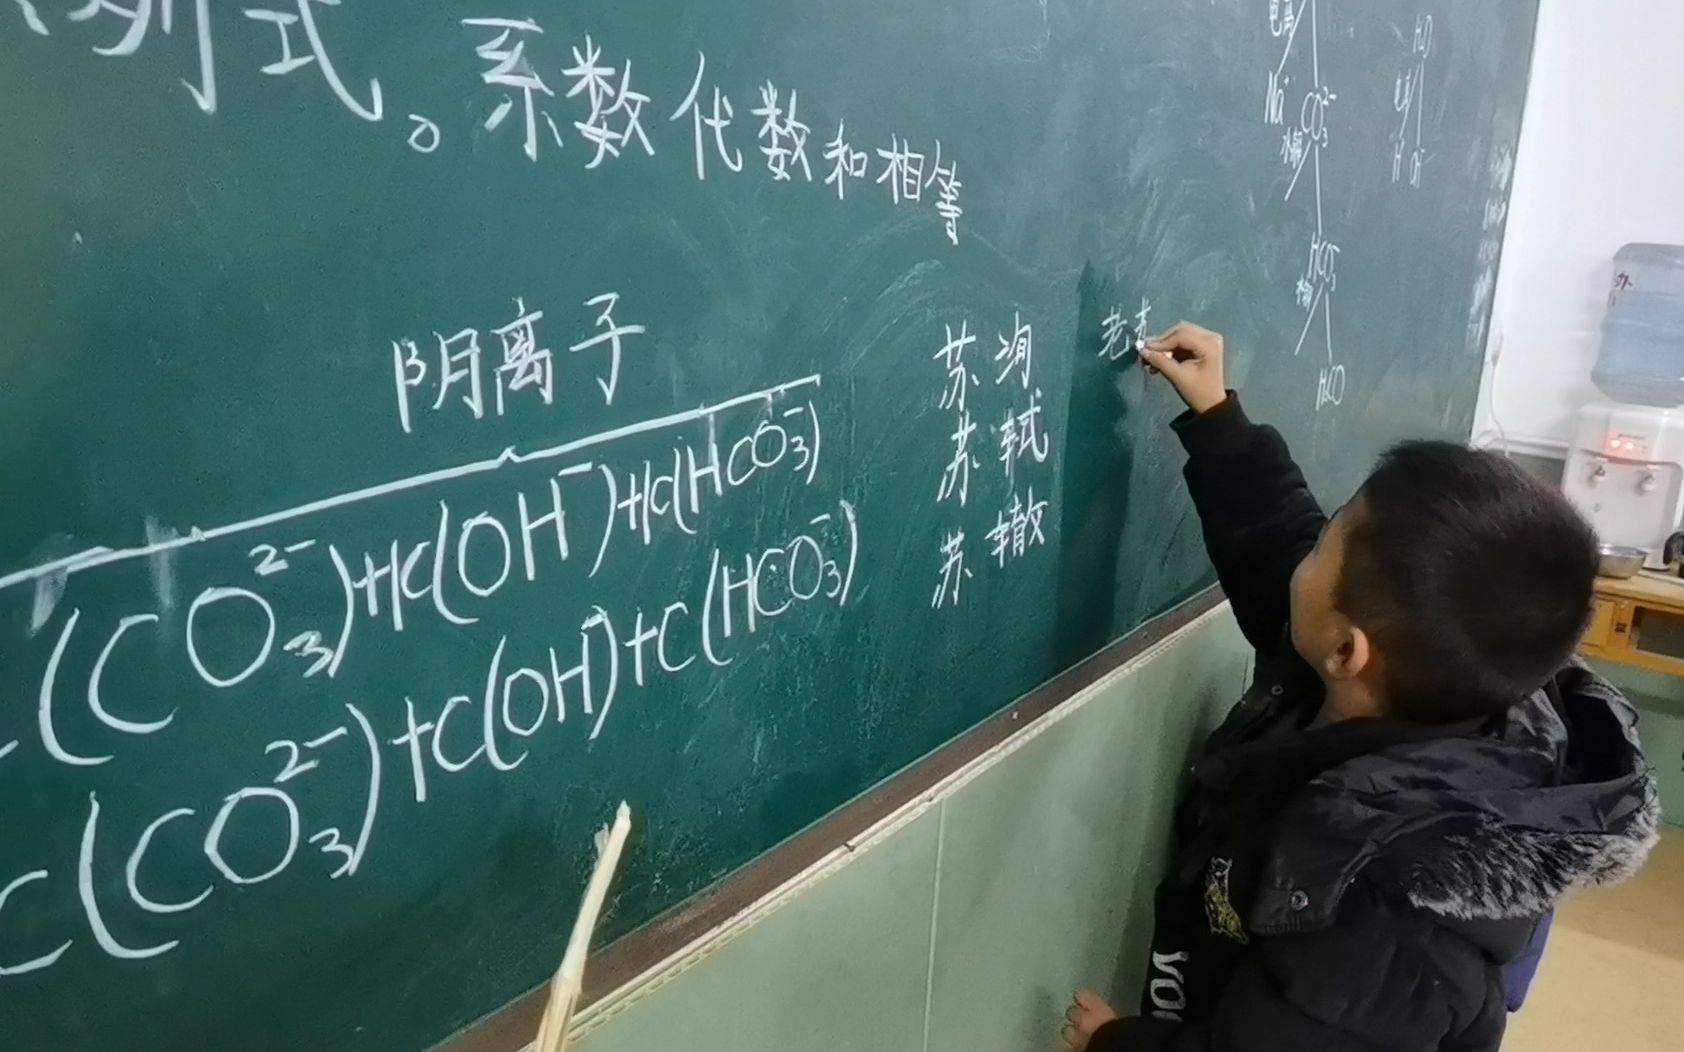 列式。系数代数和相等
阴离子
(CO₃²⁻)+c(OH⁻)+c(HCO₃⁻)
c(CO₃²⁻)+c(OH⁻)+c(HCO₃⁻)
苏洵
苏轼
苏辙
老
电离
Na⁺ CO₃²⁻
水解
HCO₃⁻
水解
H₂CO
H₂O
电离
H⁺ OH⁻
办
VO